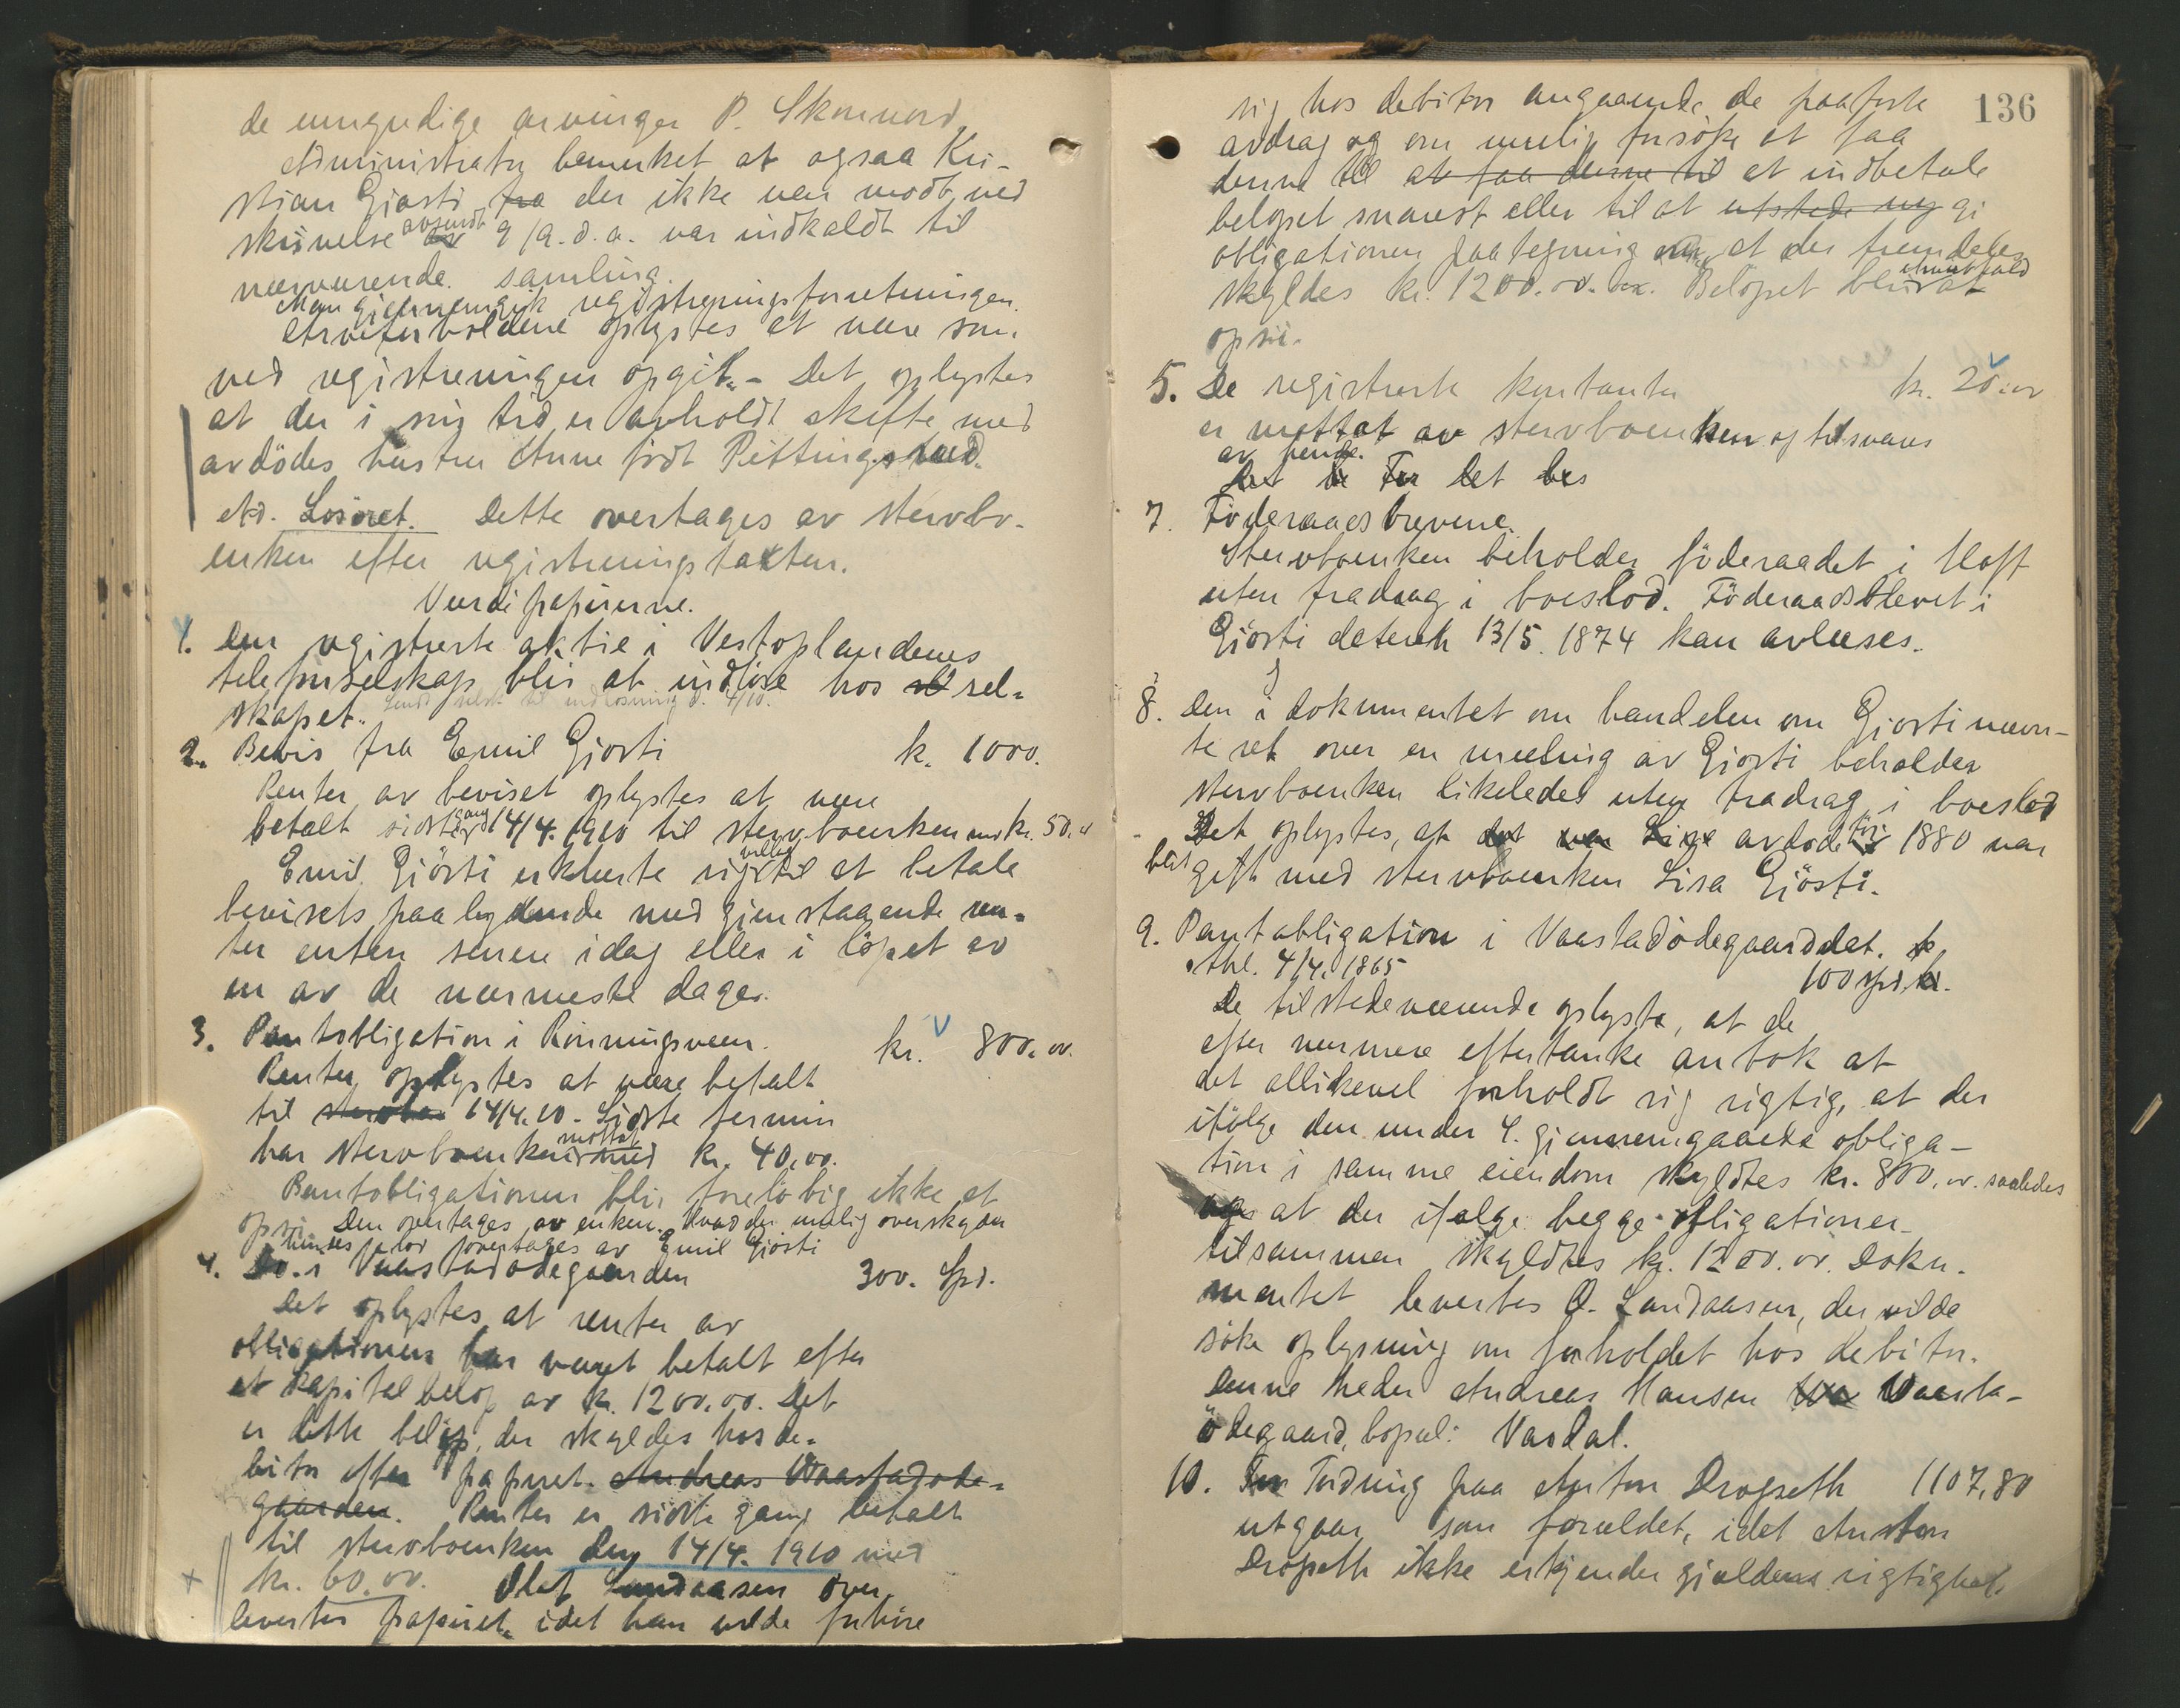 de umyndige arvinger P. Skomvord.
Administrator bemerket at ogsaa Kri-
stian Gjøsti fra der ikke var mødt, ved
skrivelse avsendt 9/9. d. a. var indkaldt til
nærværende samling.
Man gjennemgik registreringsforretningen.
Arveforholdene oplystes at være som
ved registreringen opgit. - Det oplystes
at der i sin tid er avholdt skifte med
avdødes hustru Anne født
Ad. Løsøret. Dette overtages av stervbo-
enken efter registreringstaksten.
Verdipapirerne.
1. Den registrerte aktie i Vestoplandenes
telefonselskap blir at indløse hos sel-
skapet. Sendt til indløsning d. 4/10.
2. Bevis fra Emil Gjøsti k. 1000.
Renter av beviset oplystes at være
betalt sidste gang 14/4. 1910 til stervboenken med kr. 50.
Emil Gjösti erklærte sig villig til at betale
bevisets paalydende med gjenstaaende ren-
ter enten senere idag eller i löpet av
en av de nærmeste dager.
3. Pantobligation i Rönningsveen. kr. 800.00.
Renter oplystes at være betalt
til stervbo 14/4.10. Sidste termin
har stervboenken mottat med kr. 40,00.
Pantobligationen blir foreløbig ikke at
opsi. Den overtages av enken. Hvad der mulig overskyder
hendes lod overtages av Emil Gjösti
4. Do. i Vaastadödegaarden 300. Spd.
Det oplystes at renter av
obligationen har været betalt efter
et kapitalbeløp av k. 1200.00. Det
er dette beløp, der skyldes hos de-
bitor efter papiret. Andreas Vaastadøde-
gaarden. Renter er sidste gang betalt
til stervboenken den 14/4. 1910 med
+ kr. 60.00. Olaf Landaasen over-
levertes papiret, idet han vilde forhøre
136
sig hos debitor angaaende de paaførte
avdrag og om mulig forsöke at faa
denne til at faa denne til at indbetale
beløpet snarest eller til at utstede ny gi
obligationen paategning om, at der fremdeles
skyldes kr. 1200.00. Beløpet blir at
opsi.
5. De registrerte kontanter kr. 20.00
er mottat av stervboenken og tilsvares
av hende.
Det For det
7. Föderaadsbrevene.
Stervboenken beholder föderaadet i Hoff
uten fradrag i boeslod. Föderaadsbrevet i
Gjösti dateret 13/5. 1874 kan avlæses.
8. Den i dokumentet om handelen om Gjøsti nævn-
te ret over en mæling av Gjøsti beholder
stervboenken likeledes uten fradrag i boeslod
Det oplystes, at det var Lisa avdøde før 1880 var
blit gift med stervboenken Lisa Gjösti.
9. Pantobligation i Vaastadödegaard dat.
thl. 4/4. 1865 100 spd.
De tilstedeværende oplyste, at de
efter nærmere eftertanke antok at
det allikevel forholdt sig rigtig, at der
ifölge den under 4. gjennemgaaede obliga-
tion i samme eiendom skyldtes kr. 800.00. saaledes
at der ifølge begge obligationer
tilsammen skyldtes kr. 1200.00. Doku-
mentet levertes O. Landaasen, der vilde
søke oplysning om forholdet hos debitor.
Denne heder Andreas Hansen Vaasta-
ödegaard, bopæl: Vardal.
10. For Fordring paa Anton Drogseth 1107,80
utgaar som foræeldet, idet Anton
Drogseth ikke erkjender gjældens rigtighet.